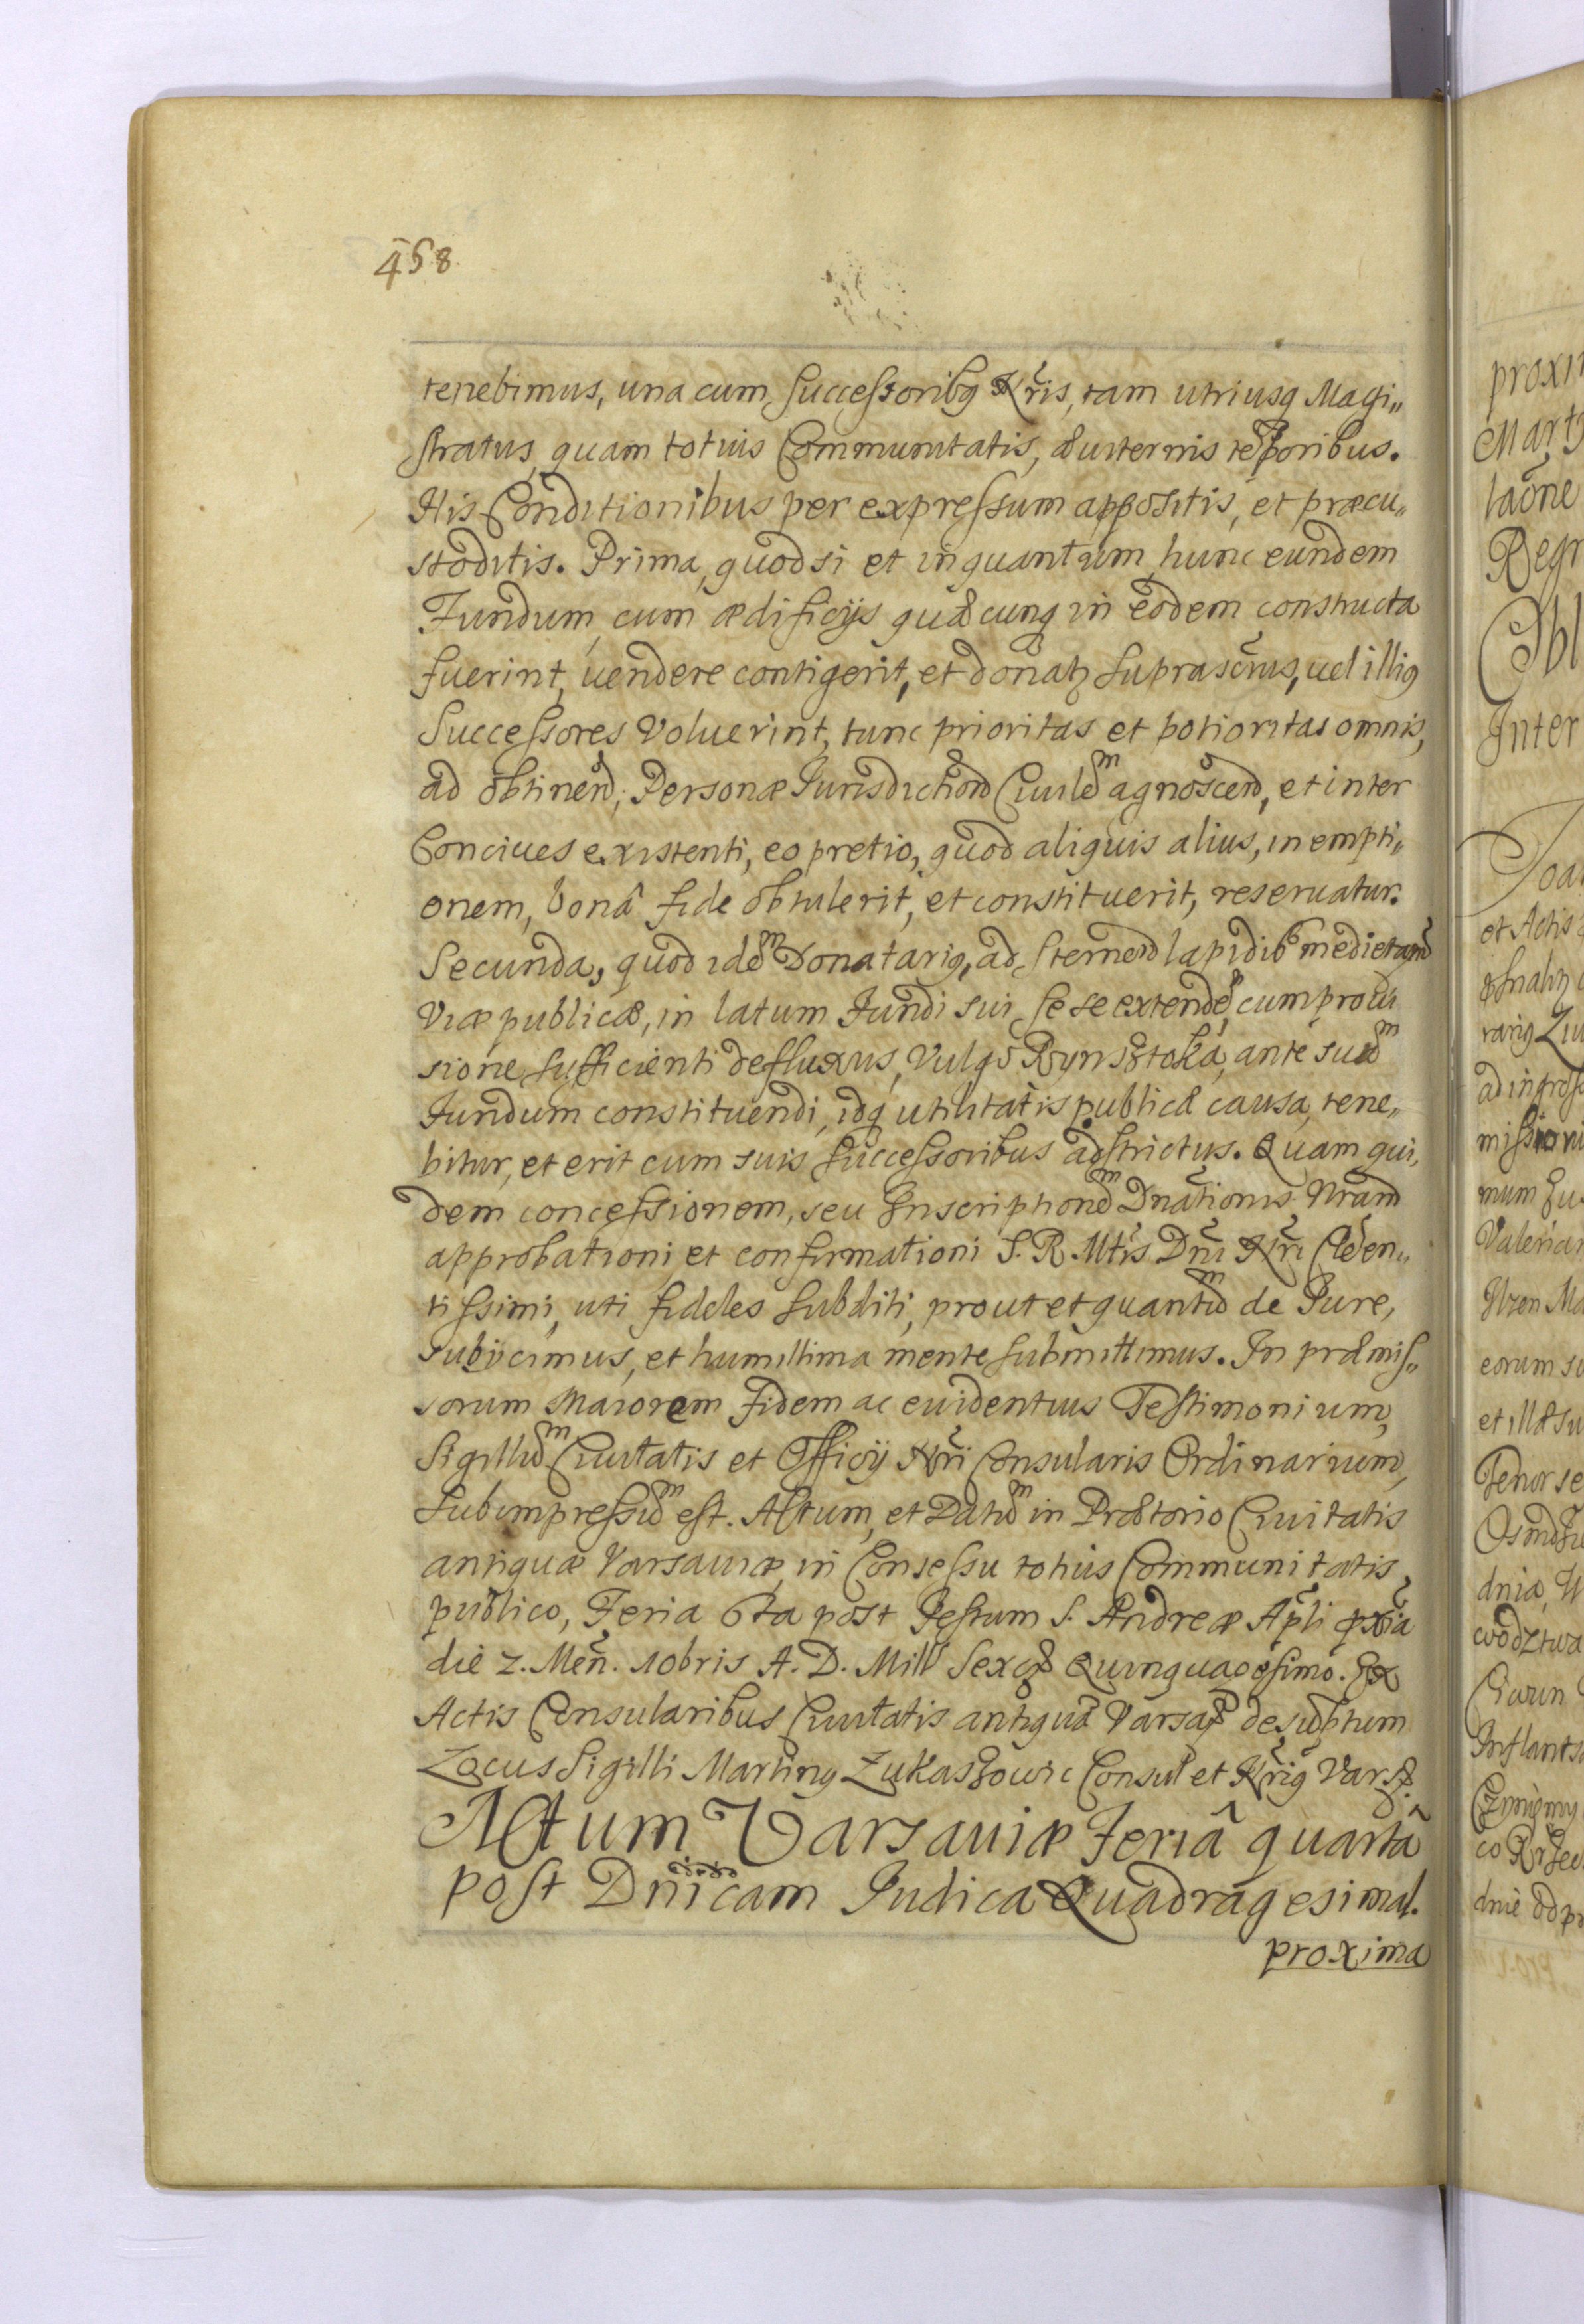 458
tenebimus, una cum successoribq Nr̃is, tam utriusq Magi„
stratus, quam totius Communitatis, æuiternis tẽporibus.
His Conditionibus per expressum appositis, et præcu„
stoditis. Prima, quod si et inquantum hunc eundem
Fundum, cum ædificijs quæcunq in eodem constructa
fuerint, uendere contigerit, et donatq suprascr̃tus, uel illiq
Successores Voluerint, tunc prioritas et potioritas omnis,
ad obtinend, Personæ Jurisdictiond Ciuilem agnoscend, et inter
Conciues existenti, eo pretio, quod aliquis alius, in empti„
onem, bonâ fide obtulerit, et constituerit, reseruatur.
Secunda, quod idem Donatariq, ad sternend lapidib medietand
Viæ publicæ, in latum Fundi sui sese extende, cum proui
sione sufficienti defluxus, Vulgo Rynsztoka, ante suum
Fundum constituendi, idq utilitatis publicæ causa, tene„
bitur, et erit cum suis successoribus adstrictus. Quam qui„
dem concessionem, seu Inscriptionem Dnãtionis Nram
approbationi et confirmationi S. R. Mtis Dñi Nr̃i Clemen„
tissimi, uti fideles subditi, prout et quantum de Jure,
subijcimus, et humillima mente submittimus. In præmis„
sorum Maiorem fidem ac euidentius Testimonium,
Sigillum Ciuitatis et Officij Nr̃i Consularis Ordinarium,
subimpressum est. Actum, et Datum in Prætorio Ciuitatis
antiquæ Varsauiæ, in Consessu totius Communitatis
publico, Feria 6ta post Festum S. Andreæ Apl̃i px̃ia
die 2. Men̄. 10bris A. D. Mill Sexc Quinquagesimo. Ex
Actis Consularibus Ciuitatis antiquæ Varsa desumptum
Locus Sigilli Martinq Lukaszowic Consul et Nr̃iq Vars.
Actum Varsauiæ Feriâ quartâ
post Dñicam Judica Quadragesimal.
proxima